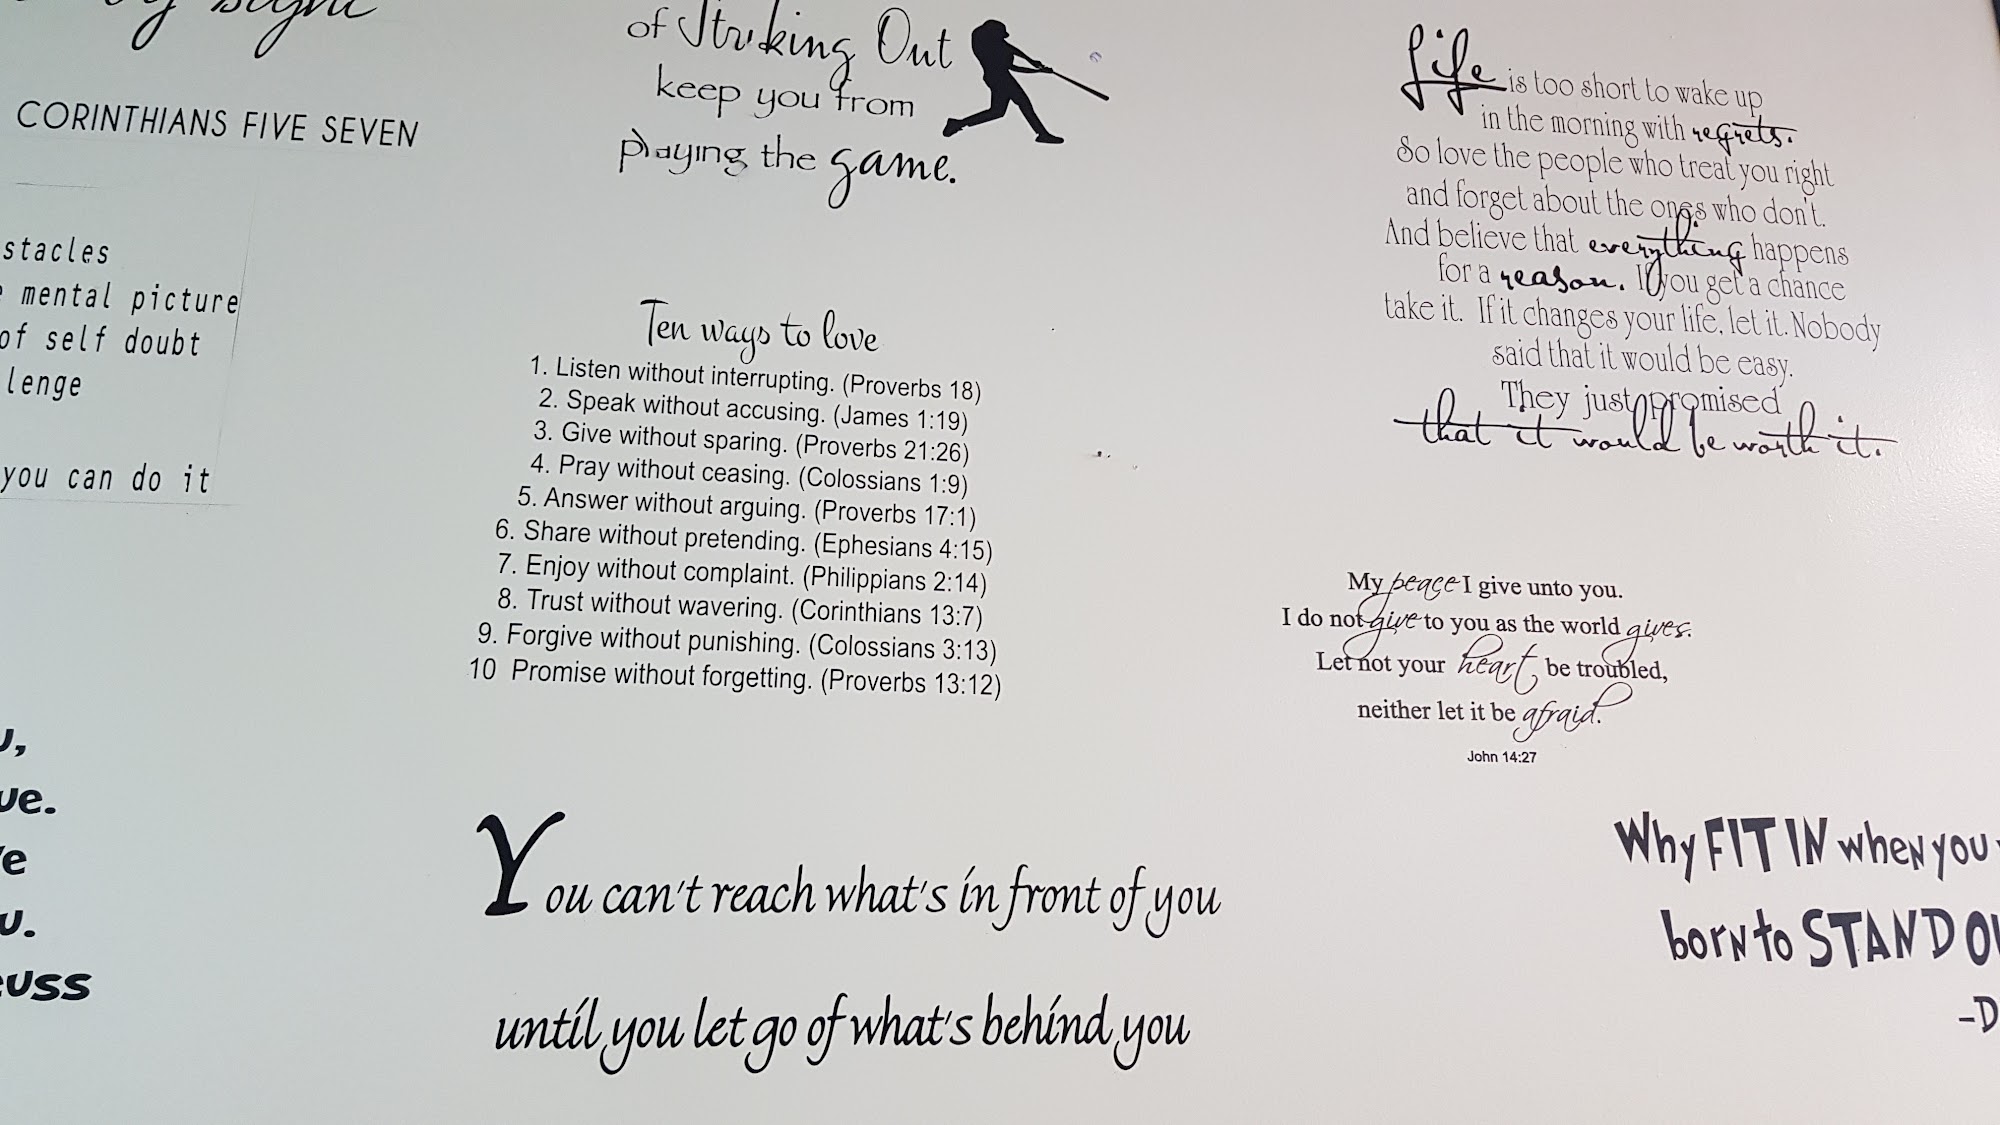 CORINTHIANS FIVE SEVEN
stacles
mental picture
of self doubt
lenge
you can do it
of Striking Out
keep you from
playing the game.
Ten ways to love
1. Listen without interrupting. (Proverbs 18)
2. Speak without accusing. (James 1:19)
3. Give without sparing. (Proverbs 21:26)
4. Pray without ceasing. (Colossians 1:9)
5. Answer without arguing. (Proverbs 17:1)
6. Share without pretending. (Ephesians 4:15)
7. Enjoy without complaint. (Philippians 2:14)
8. Trust without wavering. (Corinthians 13:7)
9. Forgive without punishing. (Colossians 3:13)
10 Promise without forgetting. (Proverbs 13:12)
You can't reach what's in front of you
until you let go of what's behind you
Life is too short to wake up
in the morning with regrets.
So love the people who treat you right
and forget about the ones who don't.
And believe that everything happens
for a reason. If you get a chance
take it. If it changes your life, let it. Nobody
said that it would be easy.
They just promised
that it would be worth it.
My peace I give unto you.
I do not give to you as the world gives.
Let not your heart be troubled,
neither let it be afraid.
John 14:27
Why FIT IN when you
born to STAND OU
-D